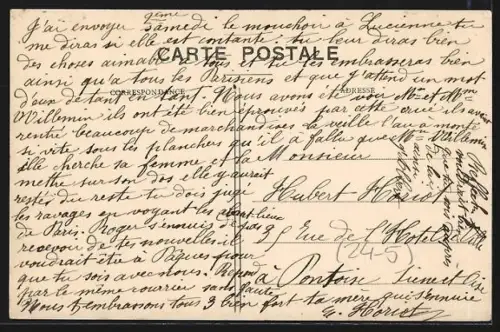 J'ai envoyé samedi le mouchoir à Lucienne tu
me diras si elle est contente. tu leur diras bien
CARTE POSTALE
des choses aimables à tous et tu les embrasseras bien
ainsi qu'a tous les Parisiens et que j'attend un mot
CORRESPONDANCE
ADRESSE
d'eux de tant en tant. Nous avons été voir Mr et Mme
Willemin ils ont été bien éprouvés par cette crue ils avaient
rentré beaucoup de marchandises la veille l'eau a monté
si vite sous les planches qu'il a fallu que Mr
aille chercher sa femme et la
mettre sur son dos elle y aurait
restés du reste tu dois jugé
les ravages en voyant les
de Paris. Roger s'ennuis de pas
recevoir de tes nouvelles il
voudrait été à Pâques pour
que tu sois avec nous. Repond
par le même courrier sans faute
Nous t'embrassons tous 3 bien fort ta mère qui s'ennuie
Monsieur
Hubert Horiot
35 Rue de l'Hotel de Ville
(245)
à Pontoise Seine et Oise
E. Horiot